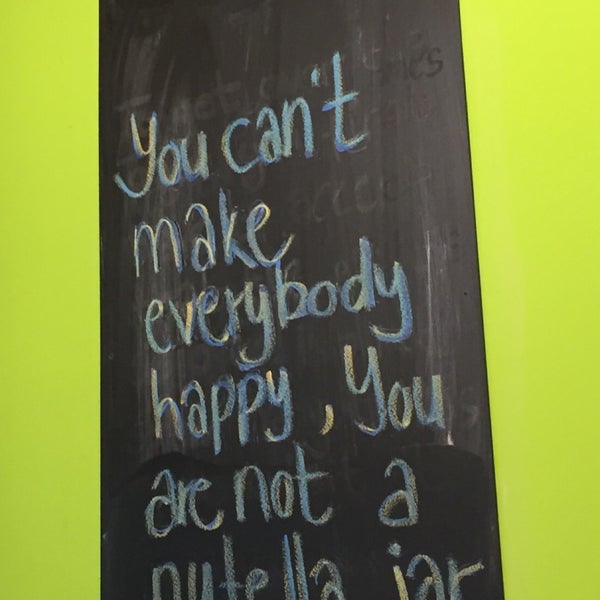 You can't
make
everybody
happy, You
are not a
nutella jar